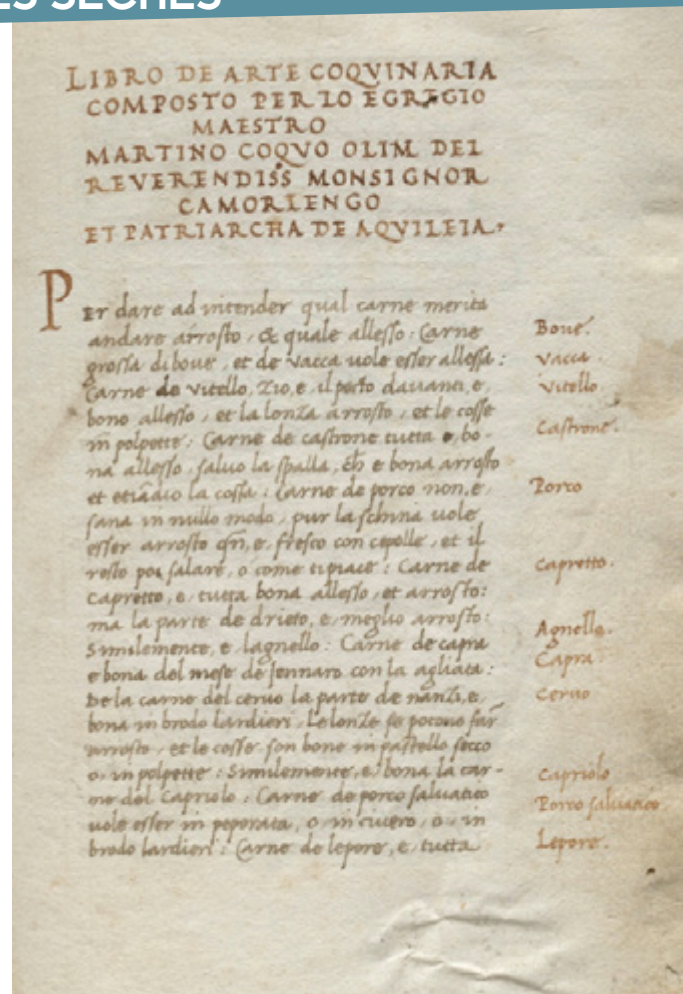 ES SECHES
LIBRO DE ARTE COQVINARIA
COMPOSTO PER LO EGREGIO
MAESTRO
MARTINO COQVO OLIM DEL
REVERENDISS MONSIGNOR
CAMORLENGO
ET PATRIARCHA DE AQVILEIA.
PEr dare ad intender qual carne merita
andare arrosto, & quale allesso: Carne
grossa di boue, et de vacca uole esser allessa:
Carne de vitello, zio, e, il petto dauanti, e,
bono allesso, et la lonza arrosto, et le cosse
in polpette: Carne de castrone tutta e, bo-
na allesso, saluo la spalla, ch e bona arrosto
et etiãdio la cossa: Carne de porco non, e,
sana in nullo modo, pur la schina uole
esser arrosto qñ, e, fresco con cepolle, et il
resto poi salare, o come ti piace: Carne de
capretto, e, tutta bona allesso, et arrosto:
ma la parte de drieto, e, meglio arrosto:
Similemente, e, lagnello: Carne de capra
e bona del mese de Jennaro con la agliata:
De la carne del ceruo la parte de nanzi, e,
bona in brodo lardieri, Le lonze se potono far
arrosto, et le cosse son bone in pastello secco
o, in polpette: Similemente, e, bona la car-
ne del Capriolo: Carne de porco saluatico
uole esser in peperata, o in ciuero, o, in
brodo lardieri: Carne de lepore, e, tutta
Boue.
Vacca.
Vitello.
Castrone.
Porco
Capretto.
Agnello.
Capra.
Ceruo
Capriolo
Porco saluatico
Lepore.